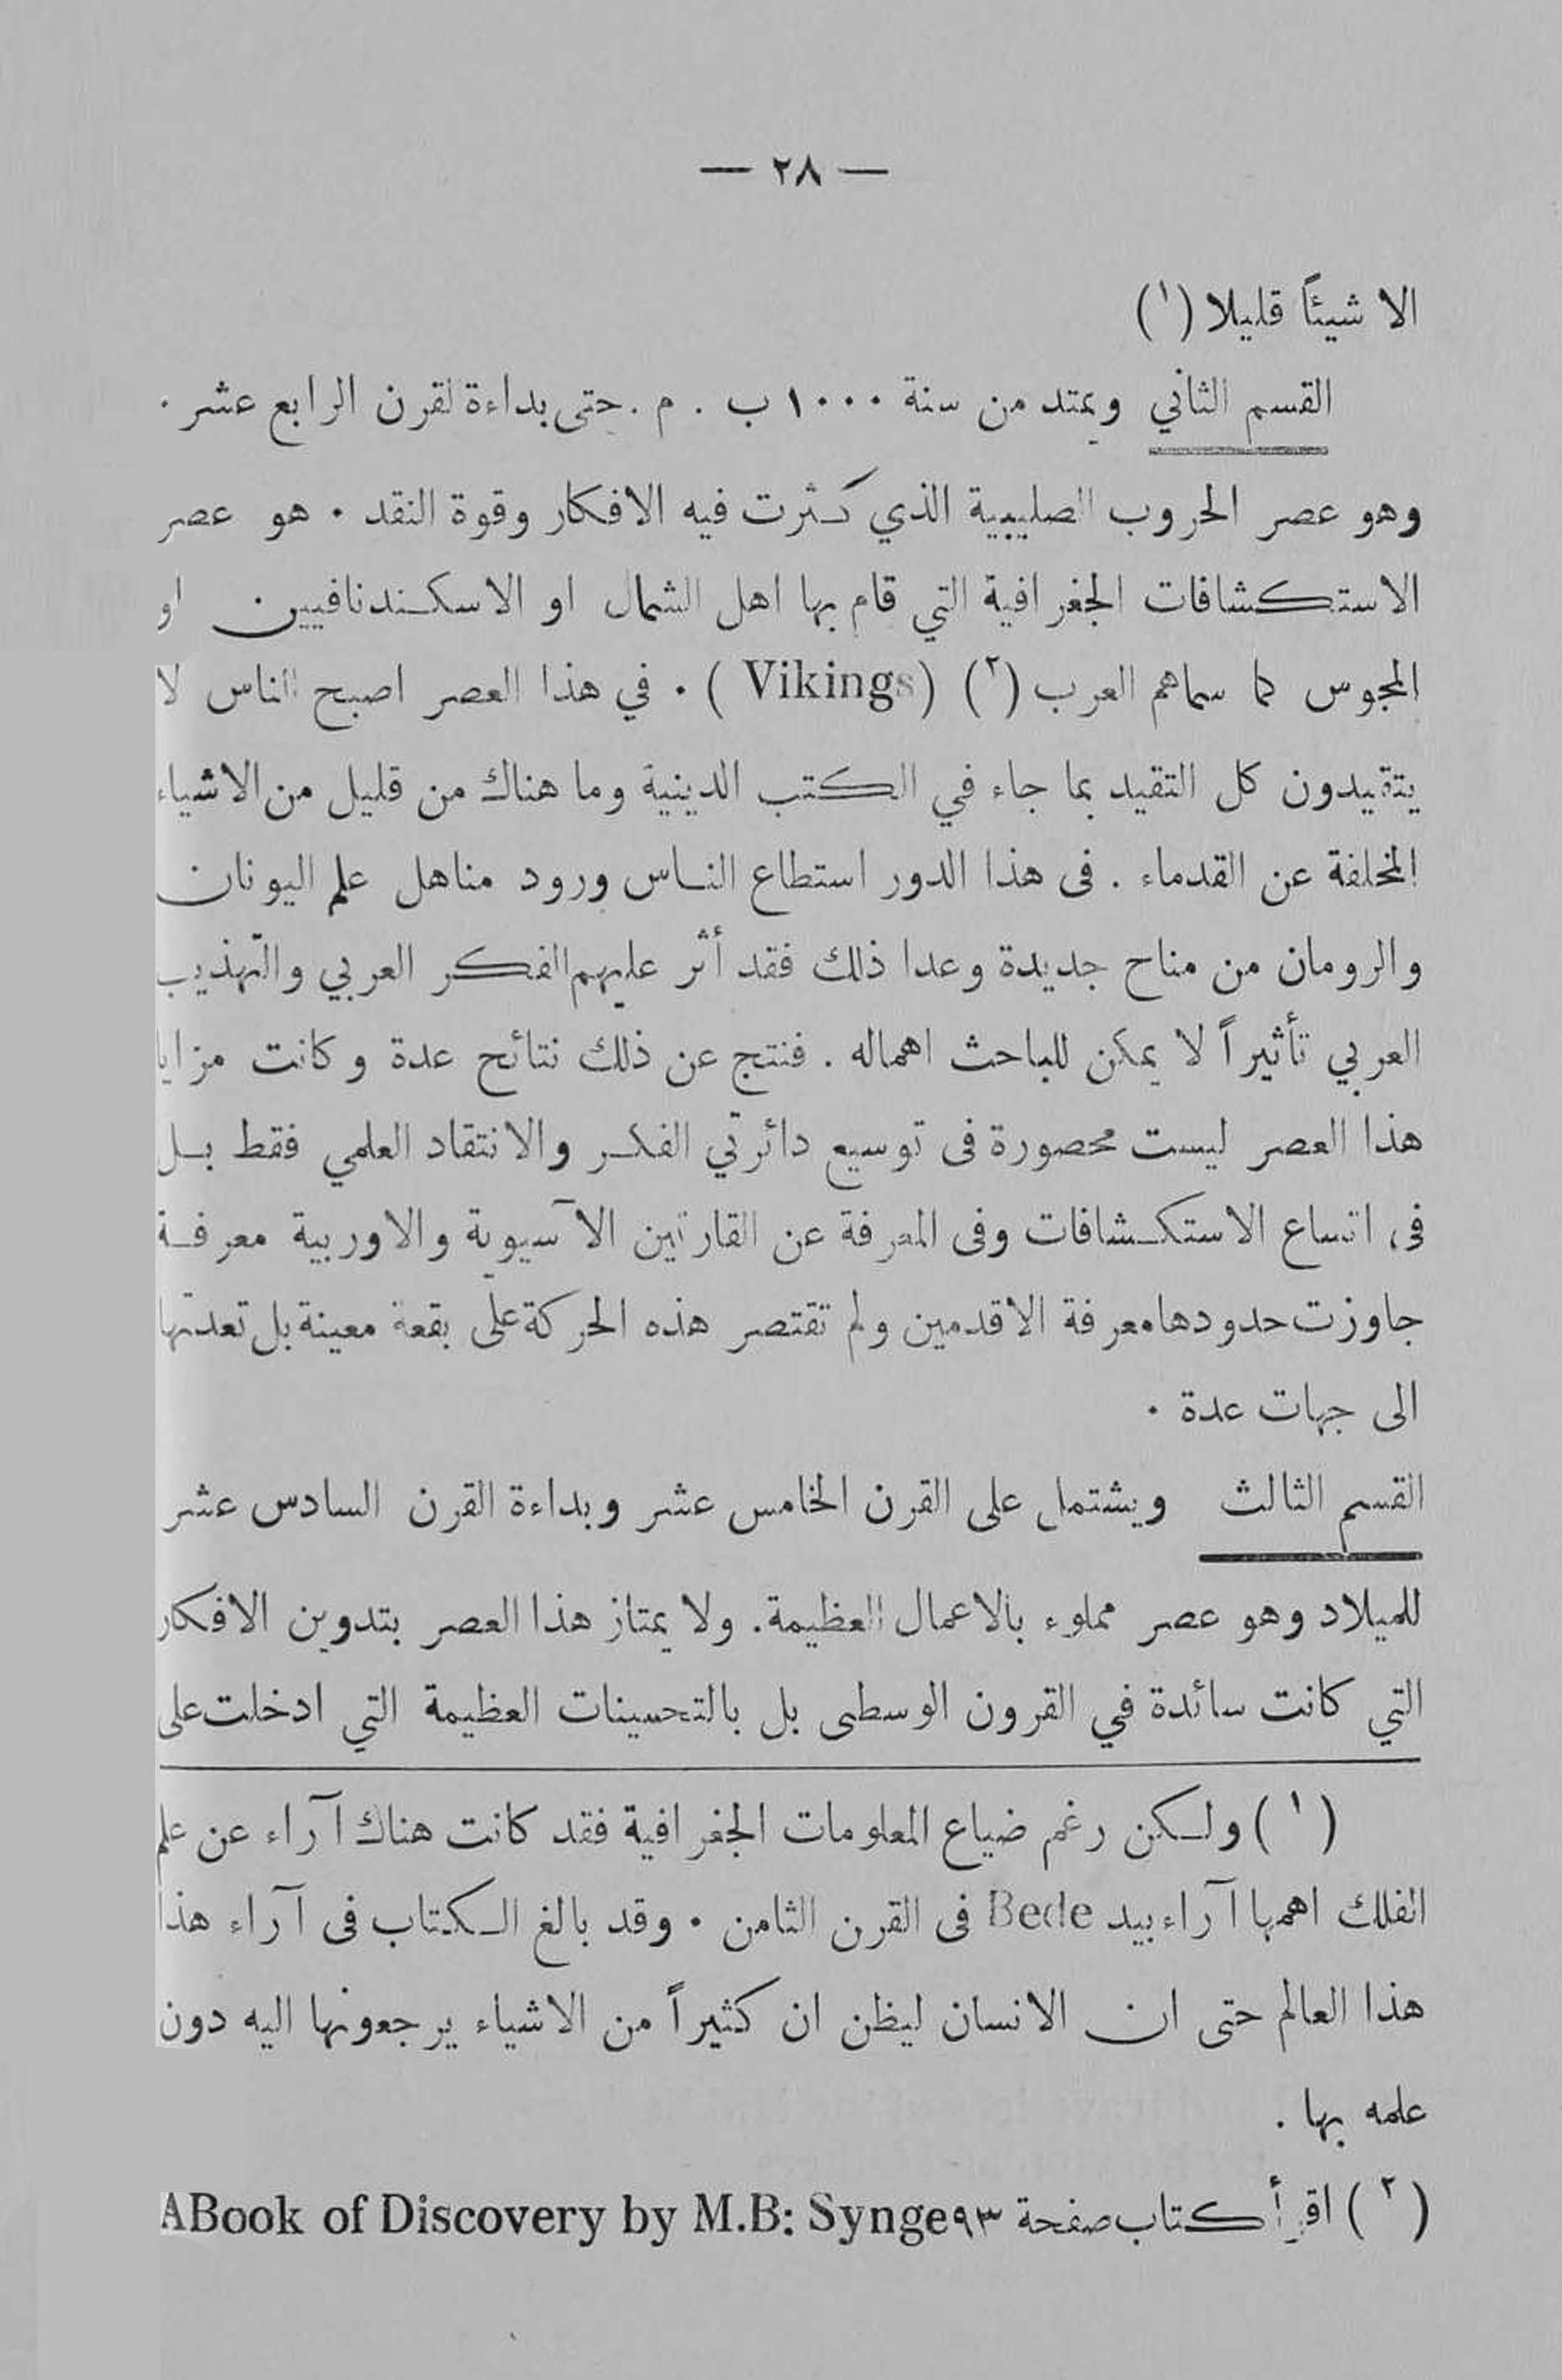 — ٢٨ —
الا شيئاً قليلا (١)
القسم الثاني ويمتد من سنة ١٠٠٠ ب . م . حتى بداءة لقرن الرابع عشر .
وهو عصر الحروب الصليبية الذي كثرت فيه الافكار وقوة النقد . هو عصر
الاستكشافات الجغرافية التي قام بها اهل الشمال او الاسكندنافيين او
المجوس كما سماهم العرب (٢) (Vikings ) . في هذا العصر اصبح الناس لا
يتقيدون كل التقيد بما جاء في الكتب الدينية وما هناك من قليل من الاشياء
المخلفة عن القدماء . فى هذا الدور استطاع الناس ورود مناهل علم اليونان
والرومان من مناح جديدة وعدا ذلك فقد أثر عليهم الفكر العربي والتهذيب
العربي تأثيراً لا يمكن للباحث اهماله . فنتج عن ذلك نتائج عدة وكانت مزايا
هذا العصر ليست محصورة فى توسيع دائرتي الفكر والانتقاد العلمي فقط بل
فى اتساع الاستكشافات وفى المعرفة عن القارتين الآسيوية والاوربية معرفة
جاوزت حدودها معرفة الاقدمين ولم تقتصر هذه الحركة على بقعة معينة بل تعدتها
الى جهات عدة .
القسم الثالث ويشتمل على القرن الخامس عشر وبداءة القرن السادس عشر
للميلاد وهو عصر مملوء بالاعمال العظيمة. ولا يمتاز هذا العصر بتدوين الافكار
التي كانت سائدة في القرون الوسطى بل بالتحسينات العظيمة التي ادخلت على
(١) ولكن رغم ضياع المعلومات الجغرافية فقد كانت هناك آراء عن علم
الفلك اهمها آراء بيد Bede فى القرن الثامن . وقد بالغ الكتاب فى آراء هذا
هذا العالم حتى ان الانسان ليظن ان كثيراً من الاشياء يرجعونها اليه دون
علمه بها .
(٢) اقرأ كتاب صفحة ٩٣ ABook of Discovery by M.B: Synge